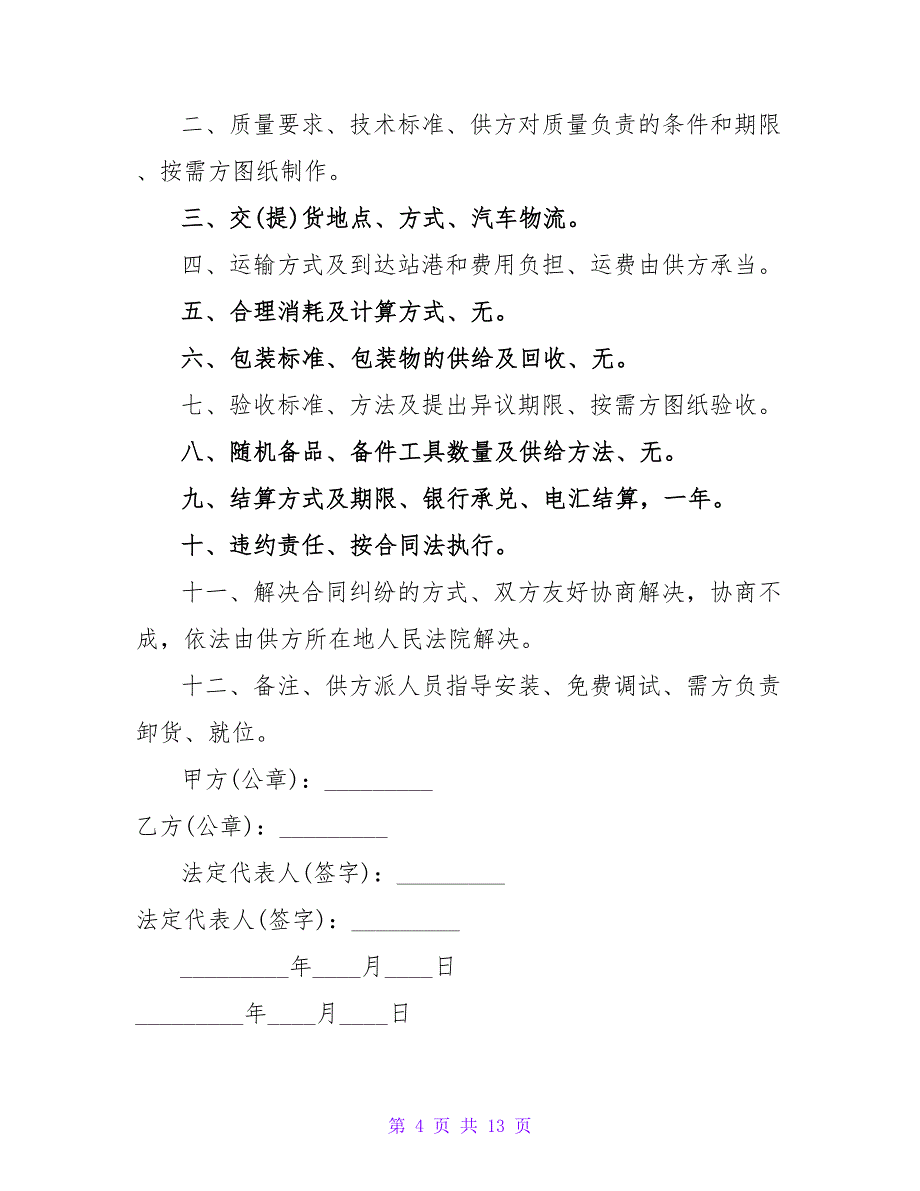 二、质量要求、技术标准、供方对质量负责的条件和期限
、按需方图纸制作。
三、交(提)货地点、方式、汽车物流。
四、运输方式及到达站港和费用负担、运费由供方承当。
五、合理消耗及计算方式、无。
六、包装标准、包装物的供给及回收、无。
七、验收标准、方法及提出异议期限、按需方图纸验收。
八、随机备品、备件工具数量及供给方法、无。
九、结算方式及期限、银行承兑、电汇结算，一年。
十、违约责任、按合同法执行。
十一、解决合同纠纷的方式、双方友好协商解决，协商不
成，依法由供方所在地人民法院解决。
十二、备注、供方派人员指导安装、免费调试、需方负责
卸货、就位。
甲方(公章)：_________
乙方(公章)：_________
法定代表人(签字)：_________
法定代表人(签字)：_________
_________年____月____日
_________年____月____日
第 4 页 共 13 页